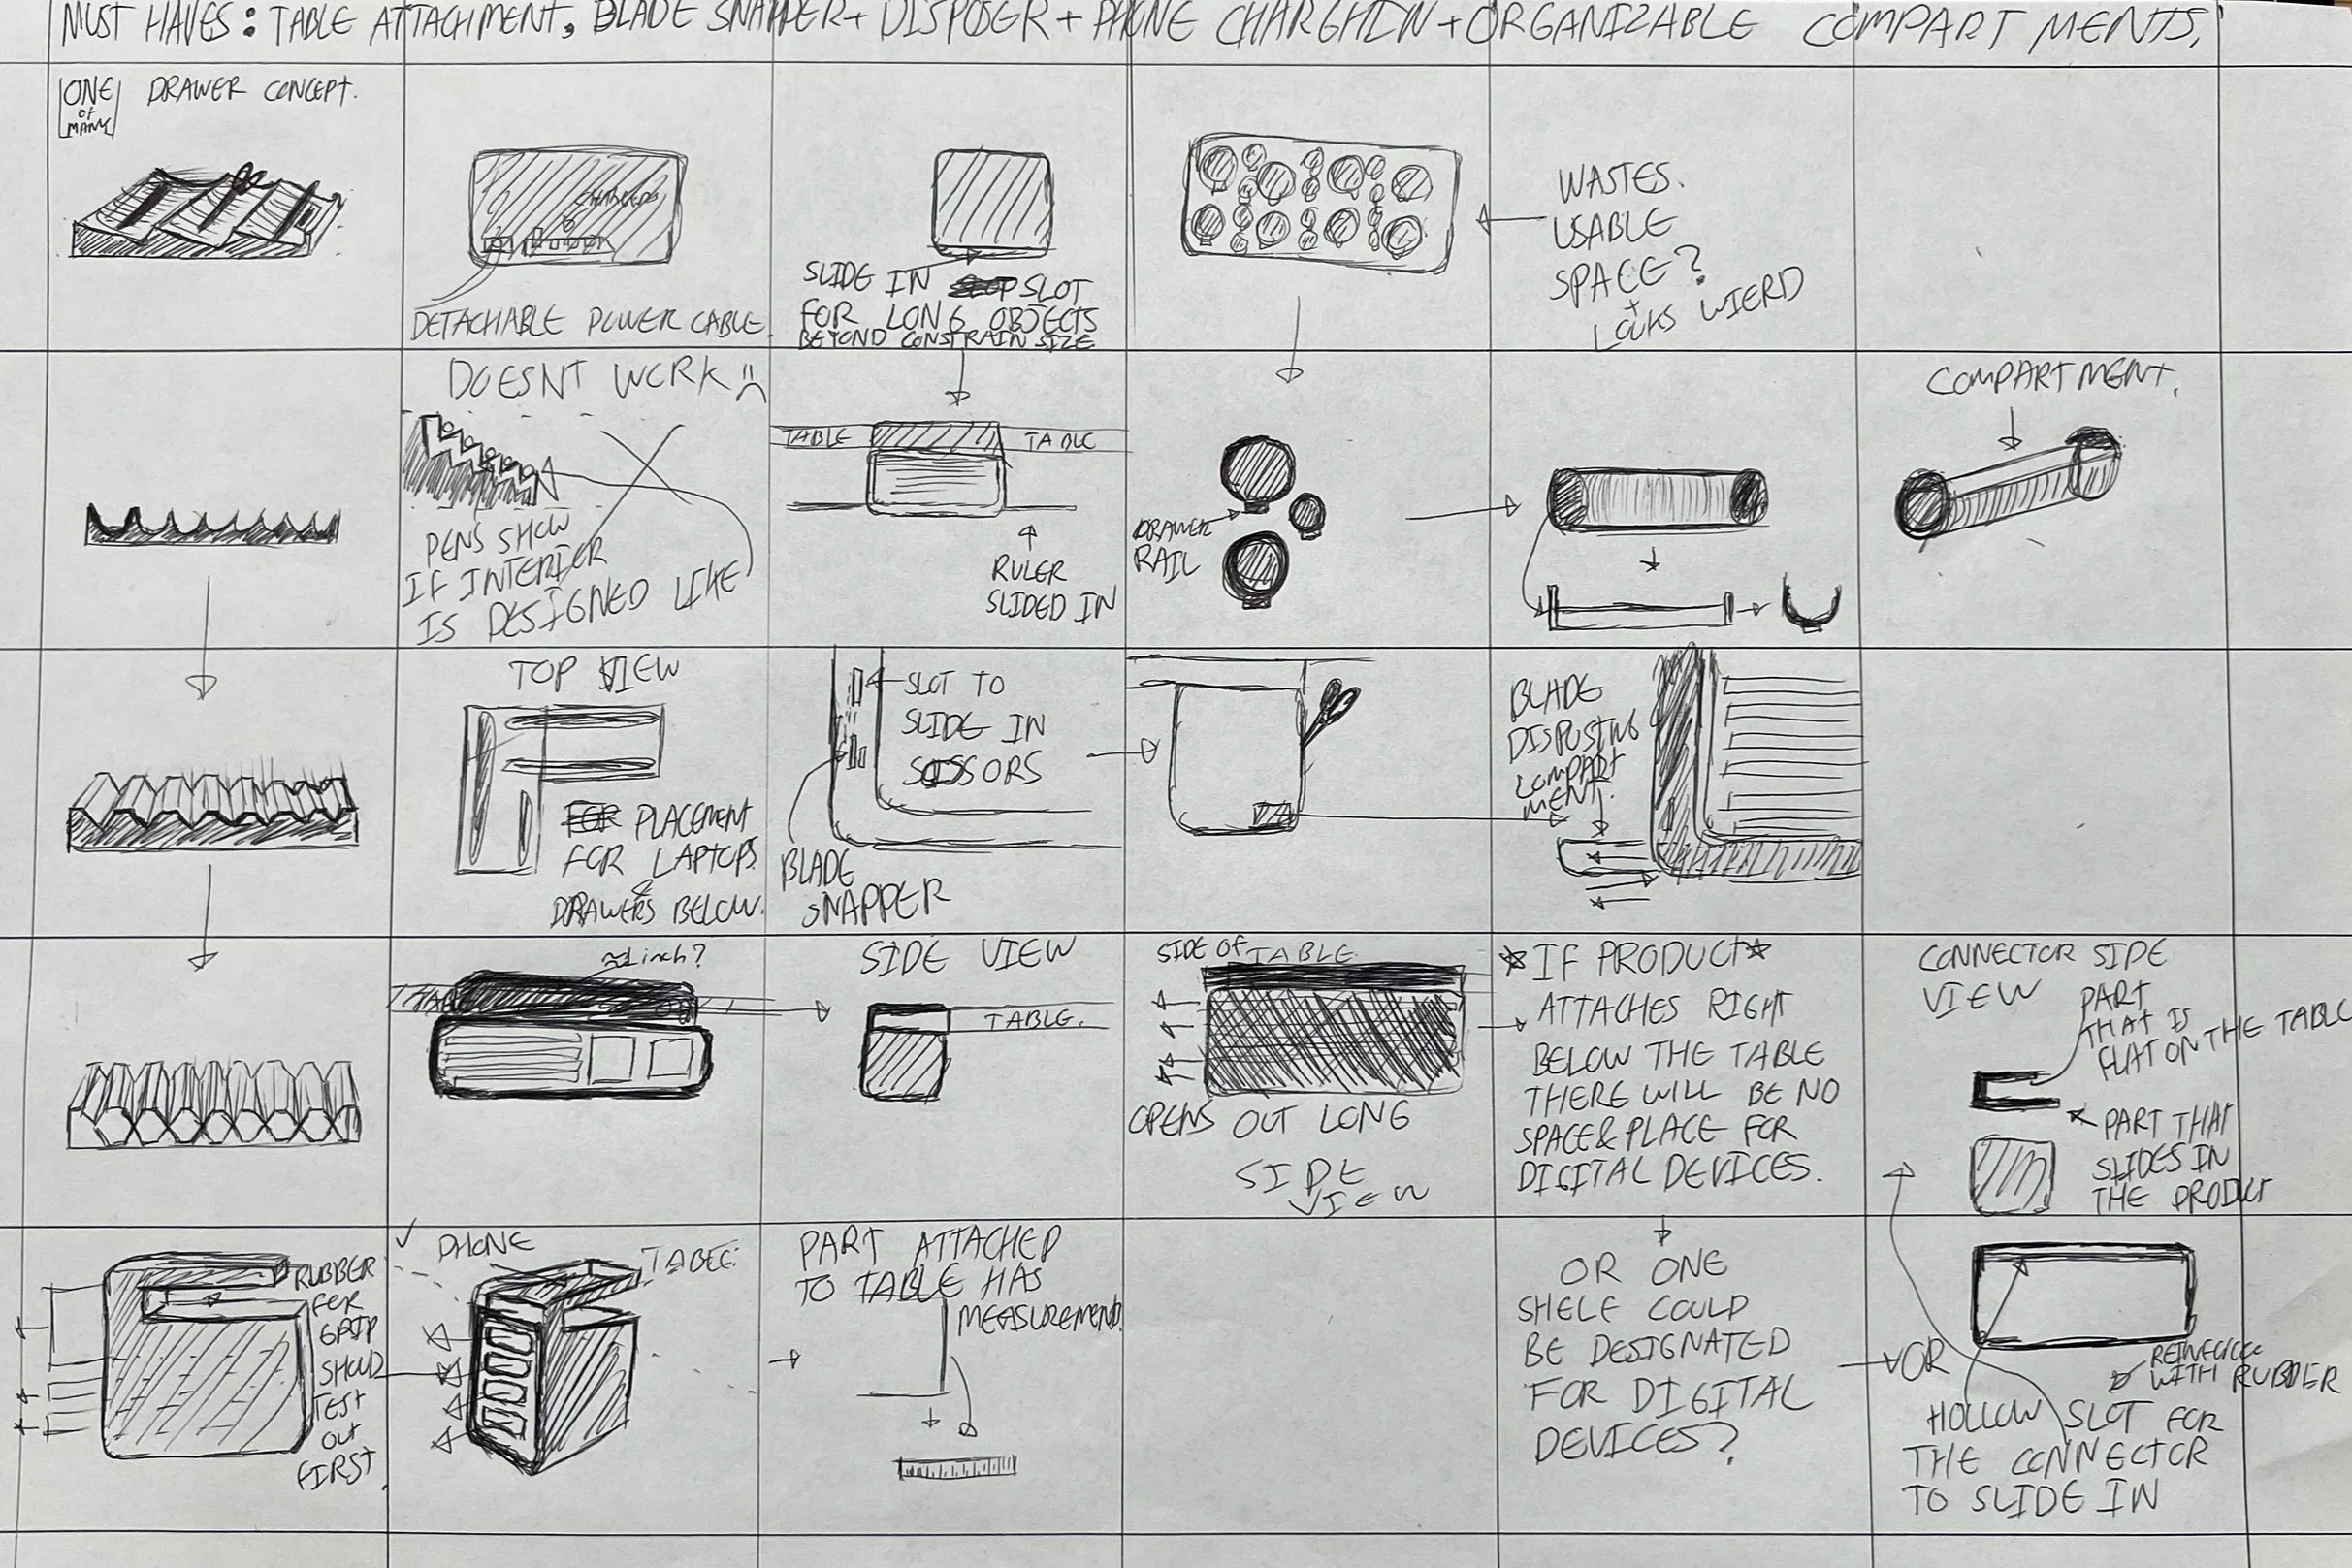 MUST HAVES: TABLE ATTACHMENT, BLADE SNAPPER + DISPOSER + PHONE CHARGHIN + ORGANIZABLE COMPARTMENTS.
ONE
OF
MANY
DRAWER CONCEPT.
CHARGERS
DETACHABLE POWER CABLE.
SLIDE IN SLOT
FOR LONG OBJECTS
BEYOND CONSTRAIN SIZE
WASTES.
USABLE
SPACE?
+
LOOKS WIERD
DOESNT WORK
PENS SHOW
IF INTERIER
IS DESIGNED LIKE
TABLE
TABLE
RULER
SLIDED IN
DRAWER
RAIL
COMPARTMENT.
TOP VIEW
FOR PLACEMENT
FOR LAPTOPS
&
DRAWERS BELOW.
SLOT TO
SLIDE IN
SCISSORS
BLADE
SNAPPER
BLADE
DISPOSING
COMPART
MENT.
≈1 inch?
TABLE
SIDE VIEW
TABLE.
SIDE OF TABLE
OPENS OUT LONG
SIDE
VIEW
*IF PRODUCT*
ATTACHES RIGHT
BELOW THE TABLE
THERE WILL BE NO
SPACE & PLACE FOR
DIGITAL DEVICES.
CONNECTOR SIDE
VIEW
PART
THAT IS
FLAT ON THE TABLE
PART THAT
SLIDES IN
THE PRODUCT
RUBBER
FOR
GRIP
SHOULD
TEST
OUT
FIRST.
PHONE
TABLE
PART ATTACHED
TO TABLE HAS
MEASUREMENT
OR ONE
SHELF COULD
BE DESIGNATED
FOR DIGITAL
DEVICES?
OR
REINFORCE
WITH RUBBER
HOLLOW SLOT FOR
THE CONNECTOR
TO SLIDE IN